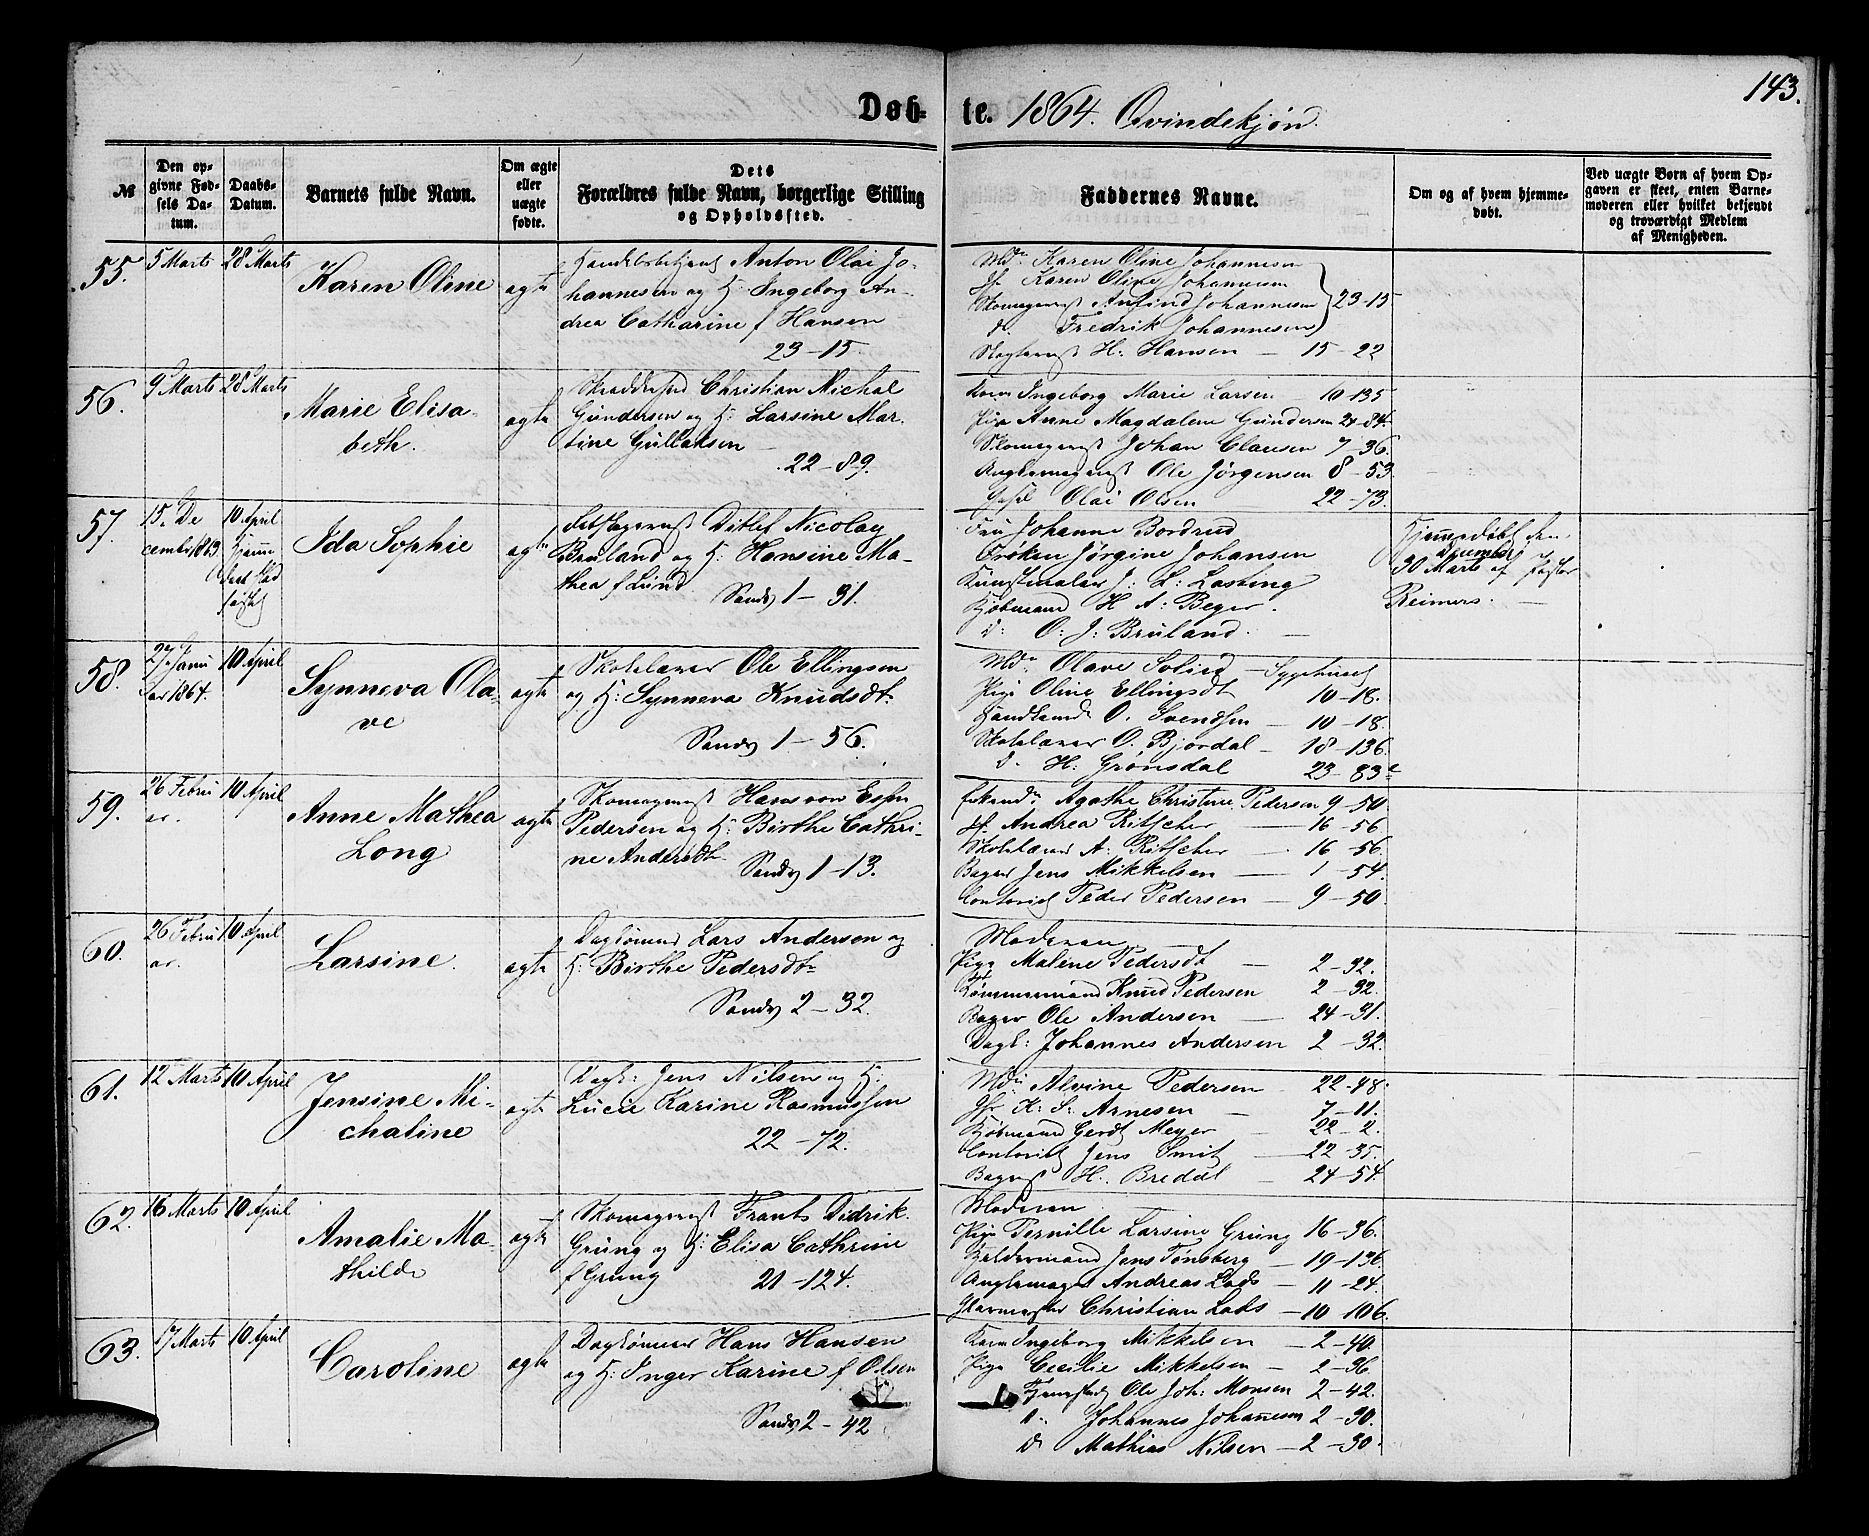 143.
Døb- te. 1864. Qvindekjøn.
№
Den op-
givne Fød-
sels Da-
tum.
Daabs-
Datum.
Barnets fulde Navn.
Om ægte
eller
uægte
fødte.
Dets
Forældres fulde Navn, borgerlige Stilling
og Opholdssted.
Faddernes Navne.
Om og af hvem hjemme-
døbt.
Ved uægte Børn af hvem Op-
gaven er skeet, enten Barne-
moderen eller hvilket bekjendt
og troværdigt Medlem
af Menigheden.
55. 5 Marts 28 Marts Karen Oline ægte
Handelsbetjent Anton Olai Jo-
hannesen og H: Ingeborg An-
drea Catharine f Hansen
23-15.
Md. Karen Oline Johannesen
Jfr Karen Oline Johannesen
Skomagersvd Anfind Johannesen 23-15
do Fredrik Johannesen
H: Hansen - 15-22
56. 9 Marts 28 Marts Marie Elisa-
beth. ægte
Skræddersvd Christian Michal
Gundersen og H: Larsine Mar-
tine Gullaksen
22-89.
Kone Ingeborg Marie Larsen 10-135
Pige Anne Magdalene Gundersen 21-84
Skomagersvd Johan Clausen 7-36.
Ole Jörgensen 8-53
Olai Olsen 22-73.
57. 15. De
cembr 1863 10 April
Ida Sophie ægte
Ditlef Nicolay
Bruland og H: Hansine Ma-
thea f Lund. Sandv 1-31.
Fru Johanne Bordrud
Frøken Jörgine Johansen
Kunstmaler J: L: Losting
Kjøbmand H A: Beyer.
do O: J: Bruland. -
Hjemmedøbt den
december
30 Marts af Pastor
Reimers. -
58. 27. Janu
ar 1864. 10 April Synneva Ola-
ve ægte
Skolelærer Ole Ellingsen
og H: Synneva Knudsdt.
Sandv 1-56.
Md. Olave Solied - Sygehuset
Pige Oline Ellingsdt 10-18.
O. Svendsen - 10-18.
Skolelærer O. Bjordal - 18-136
do H: Grønsdal 23-83
59. 26 Febru
ar. 10 April Anne Mathea
Long ægte
Skomagersvd Hans von Essen
Pedersen og H: Birthe Cathri-
ne Andersdt. Sandv 1-13.
Agathe Christine Pedersen 9-50
Jf. Andrea Ritscher - 16-56
Skolelærer A: Ritscher - 16-56.
Bager Jens Mikkelsen - 1-54.
Contorist Peder Pedersen - 9-50.
60. 26 Febru
ar. 10 April Larsine. ægte
Dagl Lars Andersen og
H: Birthe Pedersdt
Sandv 2-32.
Moderen
Pige Malene Pedersdt - 2-32.
Tømmermand Knud Pedersen 2-32.
Bager Ole Andersen - 24-31.
Dagl: Johannes Andersen 2-32.
61. 12 Marts 10 April Jensine Mi-
chaline ægte
Dagl: Jens Nilsen og H:
Lucie Karine Rasmussen
22-72.
Md. Alvine Pedersen - 22-48.
Jfr K: S: Arnesen - 7-11.
Kjøbmand Gerdt Meyer - 22-2.
Contorist Jens Smit - 22-35.
Bagersvd H. Bredal - 24-54.
62. 16 Marts 10 April Amalie Ma-
thilde ægte
Skomagersvd Frants Didrik
Grung og H: Elisa Cathrine
f Grung 21-124.
Moderen
Pige Pernille Larsine Grung 16-36.
Jens Tønsberg - 19-136
Andreas Lads - 11-24.
Glarmester Christian Lads - 10-106.
63. 17 Marts 10 April Caroline ægte
Dagl Hans Hansen
og H: Inger Karine f Olsen
Sandv 2-42
Kone Ingeborg Mikkelsen - 2-40.
Pige Cecilie Mikkelsen - 2-36
Ole Joh: Monsen 2-42.
do Johannes Johannesen 2-30.
do Mathias Nilsen - 2-30.